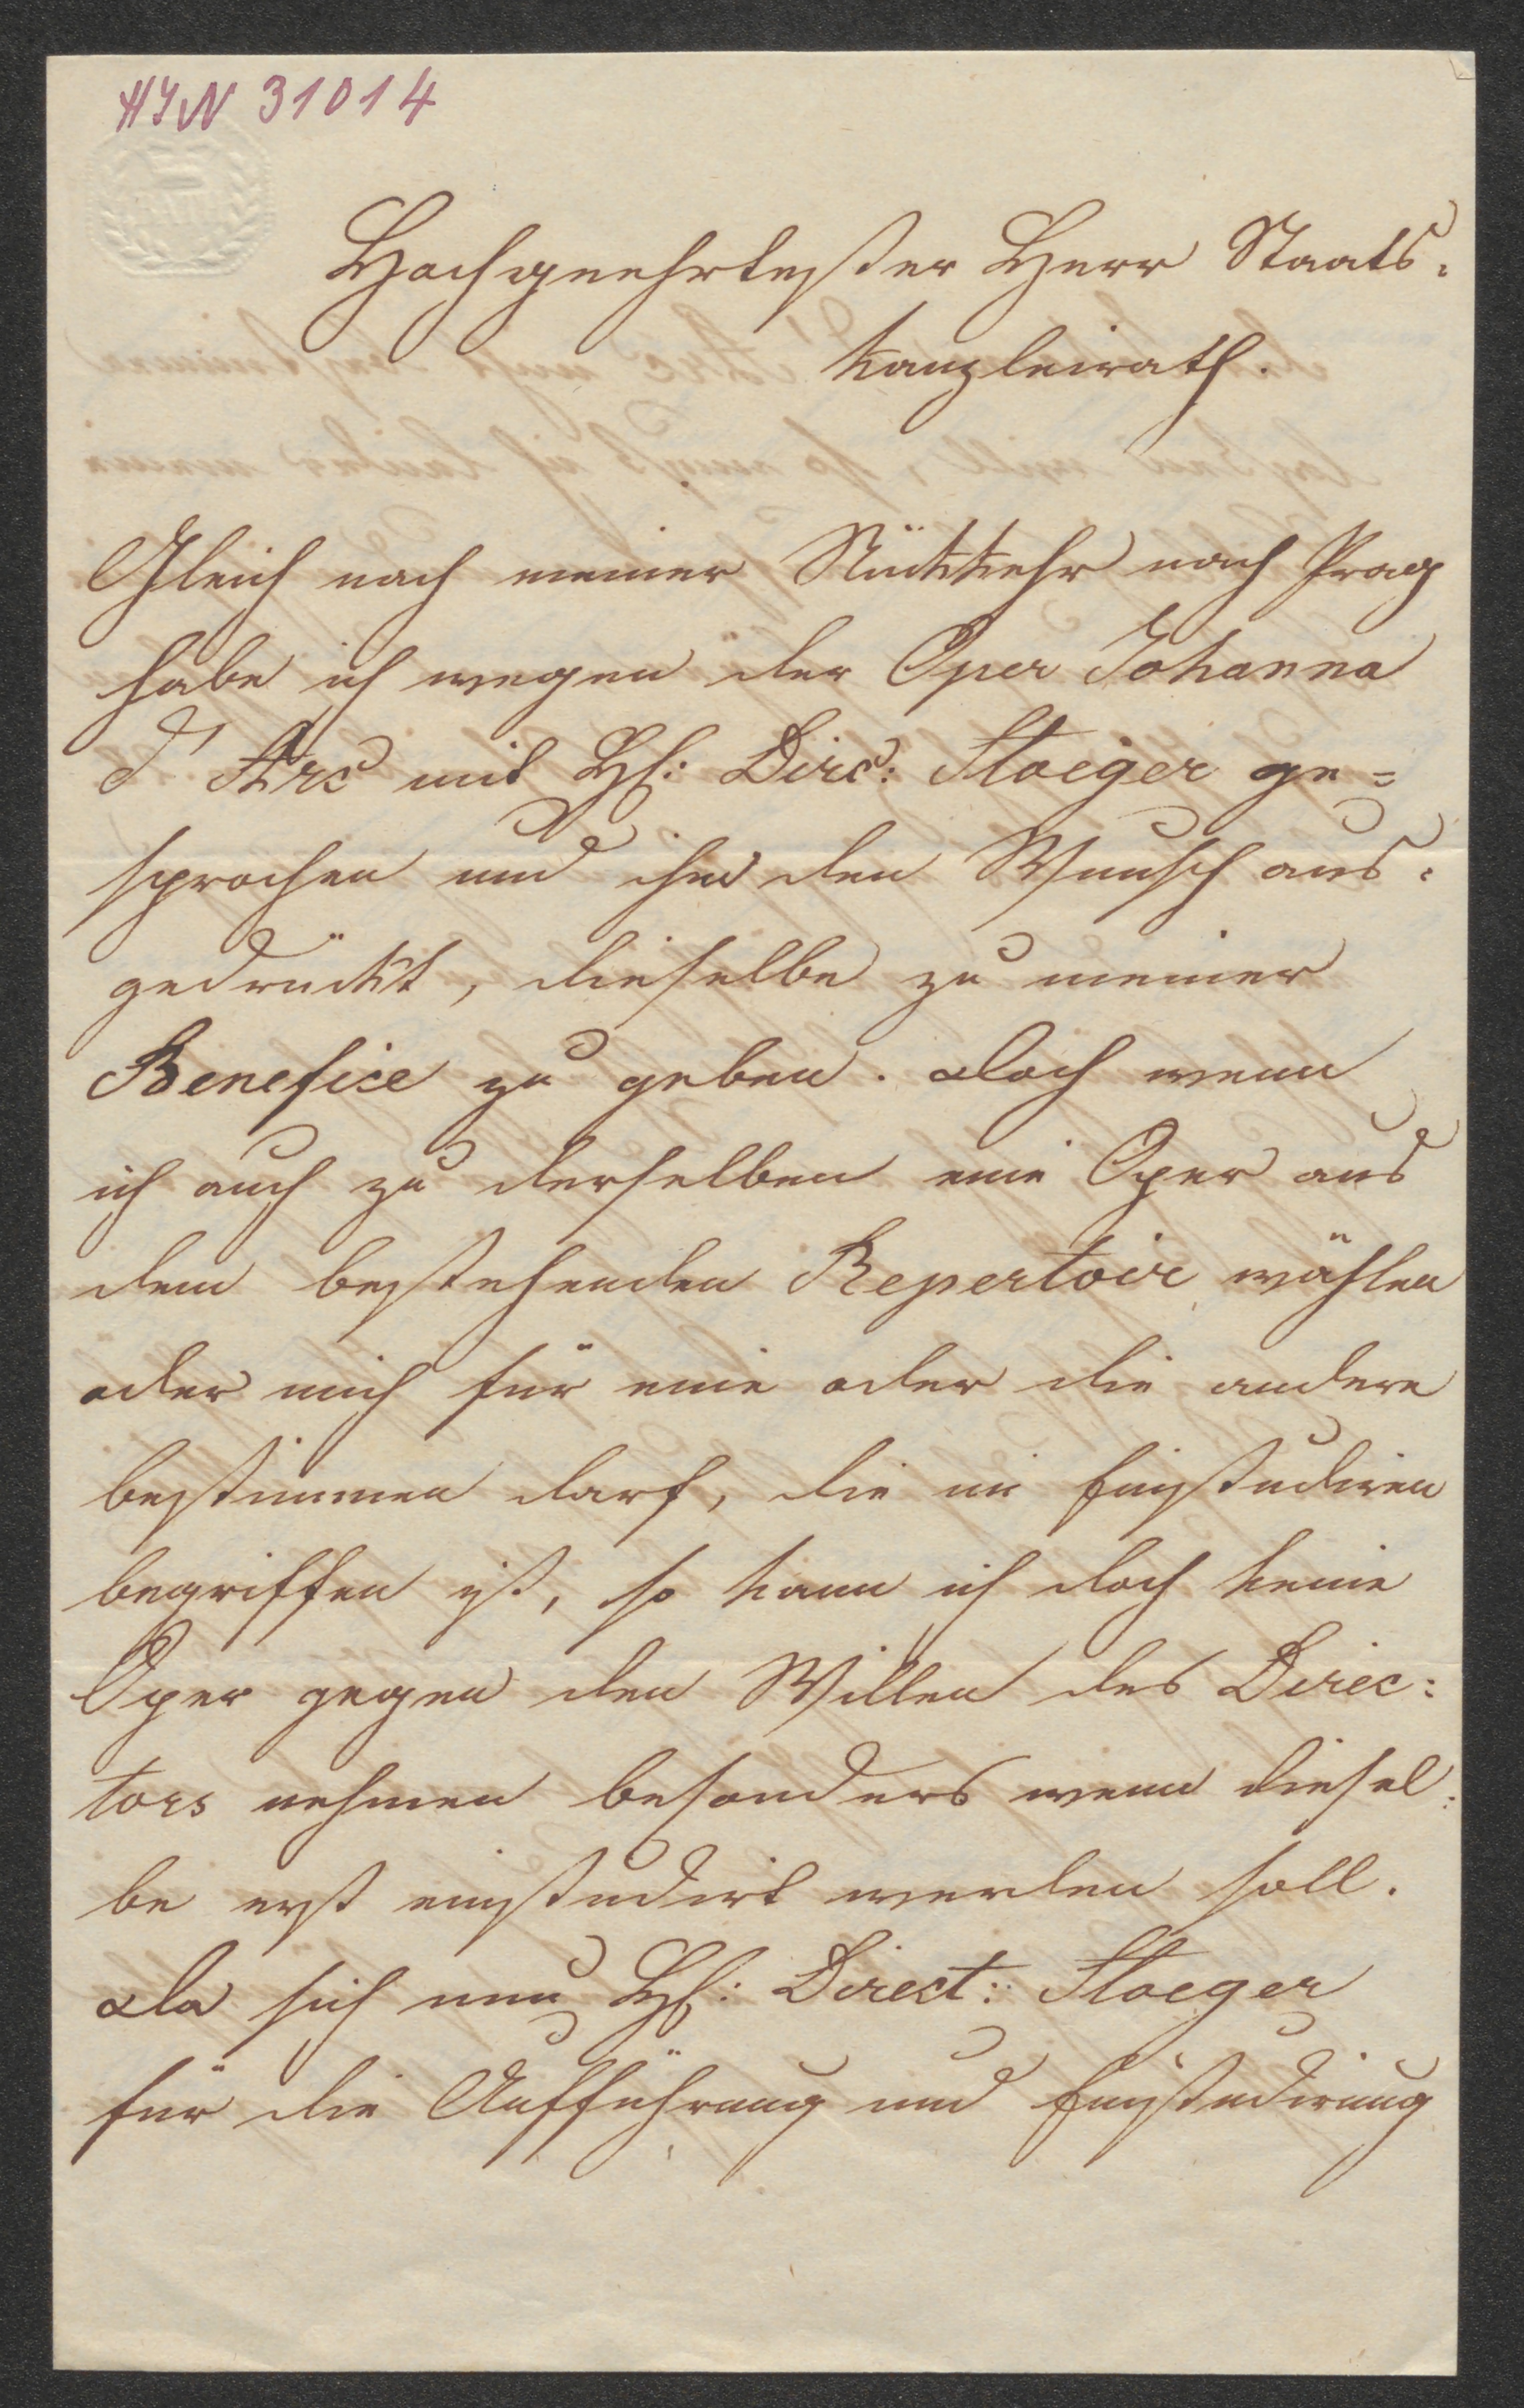 HIN 31014
Hochgeehrtester Herr Staats-
kanzleirath.
Gleich nach meiner Rückkehr nach Prag
habe ich wegen der Oper Johanna
d' Arc mit H: Direc: Stoeger ge=
sprochen und ihm den Wunsch aus-
gedrückt, dieselbe zu meiner
Benefice zu geben. Doch wenn
ich auch zu derselben eine Oper aus
dem bestehenden Repertoir wählen
oder mich für eine oder die andere
bestimmen darf, die im Einstudiren
begriffen ist, so kann ich doch keine
Oper gegen den Willen des Direc:
tors nehmen besonders wenn diesel:
be erst einstudirt werden soll.
Da sich nun H: Direct: Stoeger
für die Aufführung und Einstudirung